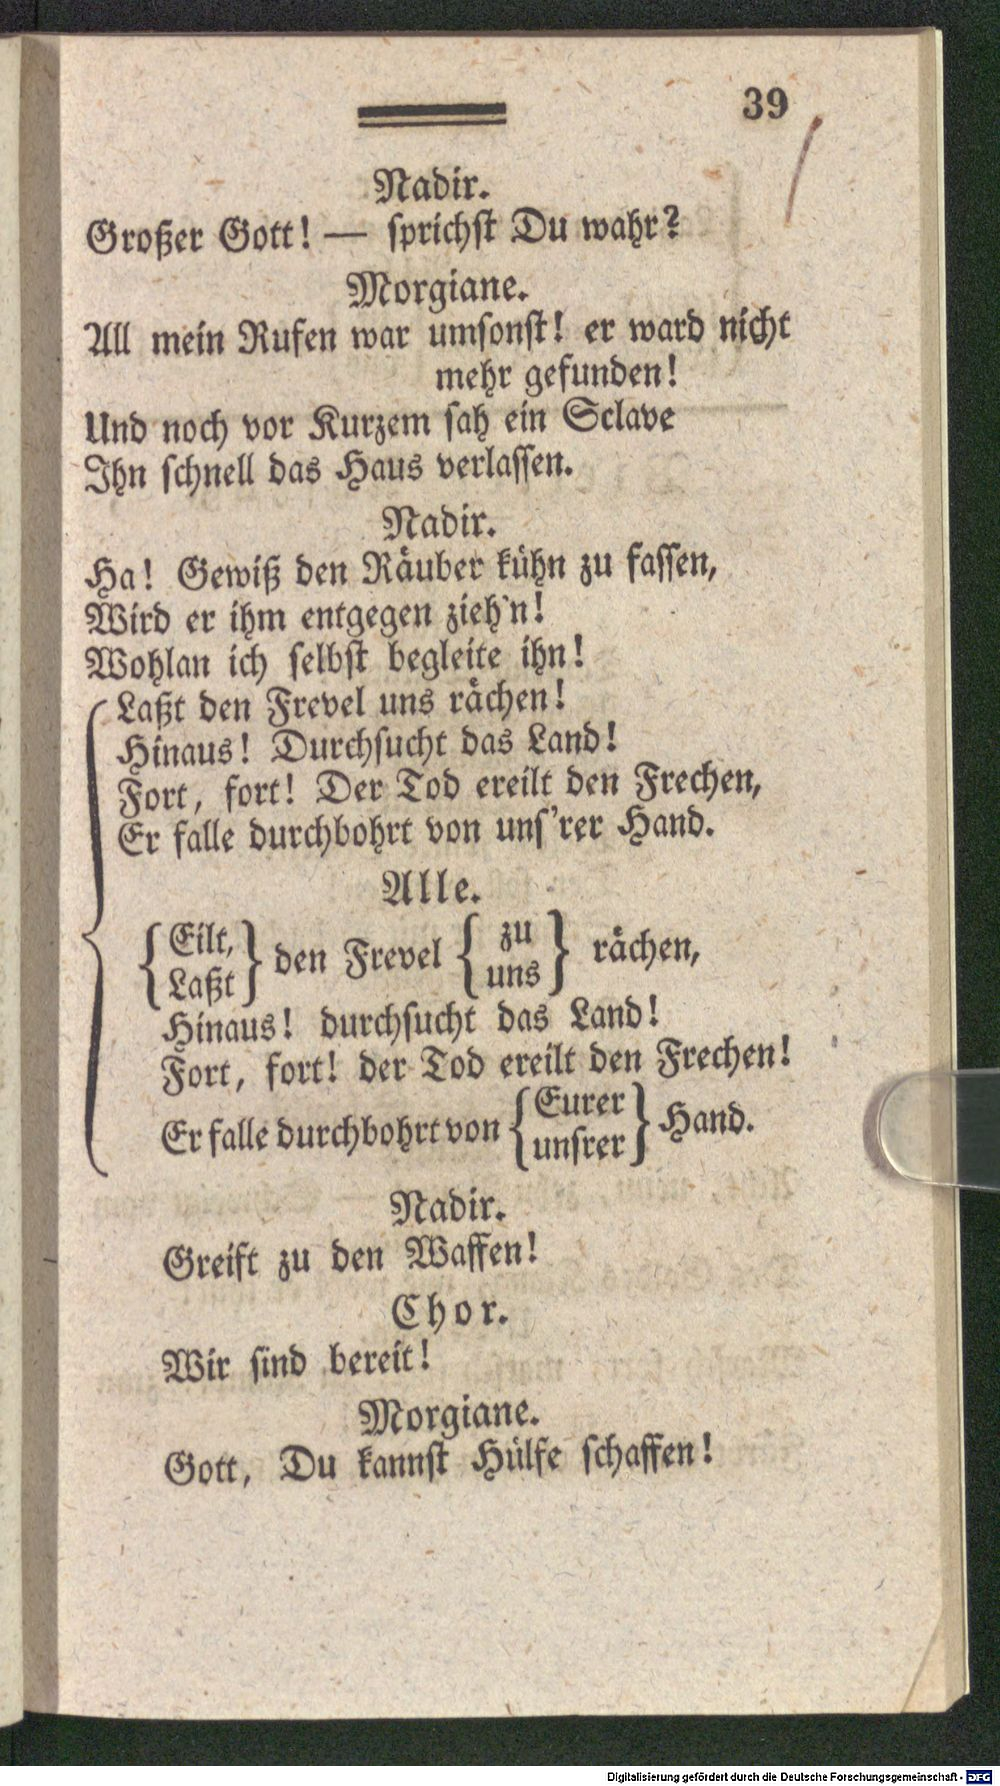 39
Nadir.
Großer Gott! — sprichst Du wahr?
Morgiane.
All mein Rufen war umsonst! er ward nicht
mehr gefunden!
Und noch vor Kurzem sah ein Sclave
Ihn schnell das Haus verlassen.
Nadir.
Ha! Gewiß den Räuber kühn zu fassen,
Wird er ihm entgegen zieh'n!
Wohlan ich selbst begleite ihn!
Laßt den Frevel uns rächen!
Hinaus! Durchsucht das Land!
Fort, fort! Der Tod ereilt den Frechen,
Er falle durchbohrt von uns'rer Hand.
Alle.
{Eilt, / Laßt} den Frevel {zu / uns} rächen,
Hinaus! durchsucht das Land!
Fort, fort! der Tod ereilt den Frechen!
Er falle durchbohrt von {Eurer / unsrer} Hand.
Nadir.
Greift zu den Waffen!
Chor.
Wir sind bereit!
Morgiane.
Gott, Du kannst Hülfe schaffen!
Digitalisierung gefördert durch die Deutsche Forschungsgemeinschaft - DFG